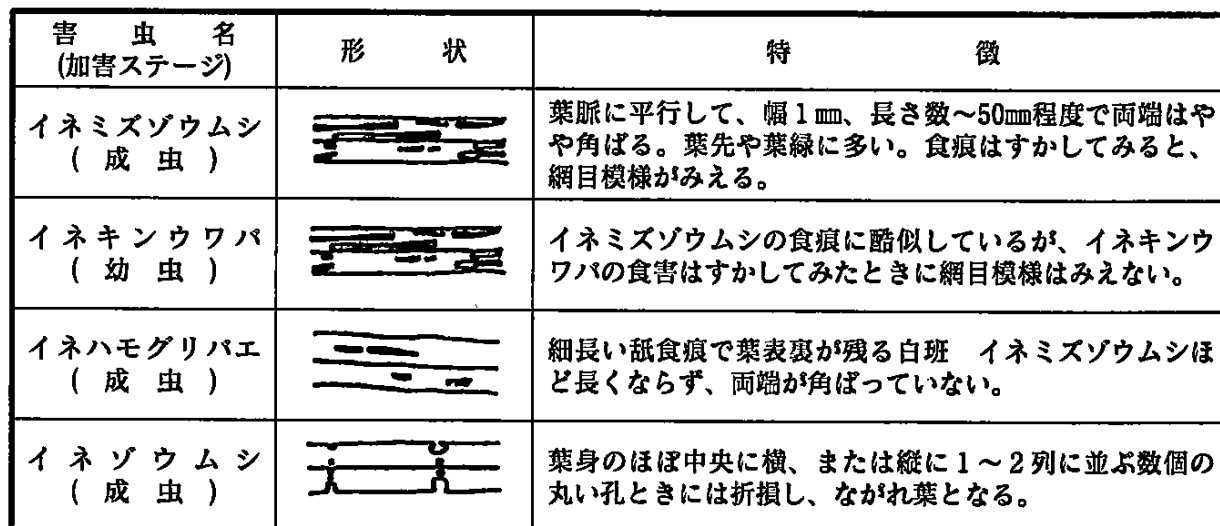 害虫名
(加害ステージ)
形状
特徴
イネミズゾウムシ
(成虫)
葉脈に平行して、幅1㎜、長さ数～50㎜程度で両端はや
や角ばる。葉先や葉緑に多い。食痕はすかしてみると、
網目模様がみえる。
イネキンウワバ
(幼虫)
イネミズゾウムシの食痕に酷似しているが、イネキンウ
ワバの食害はすかしてみたときに網目模様はみえない。
イネハモグリバエ
(成虫)
細長い舐食痕で葉表裏が残る白班　イネミズゾウムシほ
ど長くならず、両端が角ばっていない。
イネゾウムシ
(成虫)
葉身のほぼ中央に横、または縦に1～2列に並ぶ数個の
丸い孔ときには折損し、ながれ葉となる。